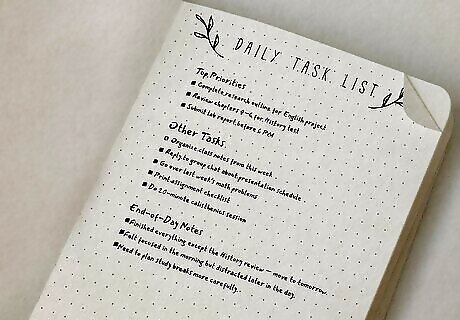 DAILY TASK LIST
Top Priorities
Complete research outline for English project
Review chapters 4-6 for History test
Submit lab report before 6 PM
Other Tasks
Organize class notes from this week
Reply to group chat about presentation schedule
Go over last week's math problems
Print assignment checklist
Do 20-minute calisthenics session
End-of-Day Notes
Finished everything except the History review — move to tomorrow.
Felt focused in the morning but distracted later in the day.
Need to plan study breaks more carefully.